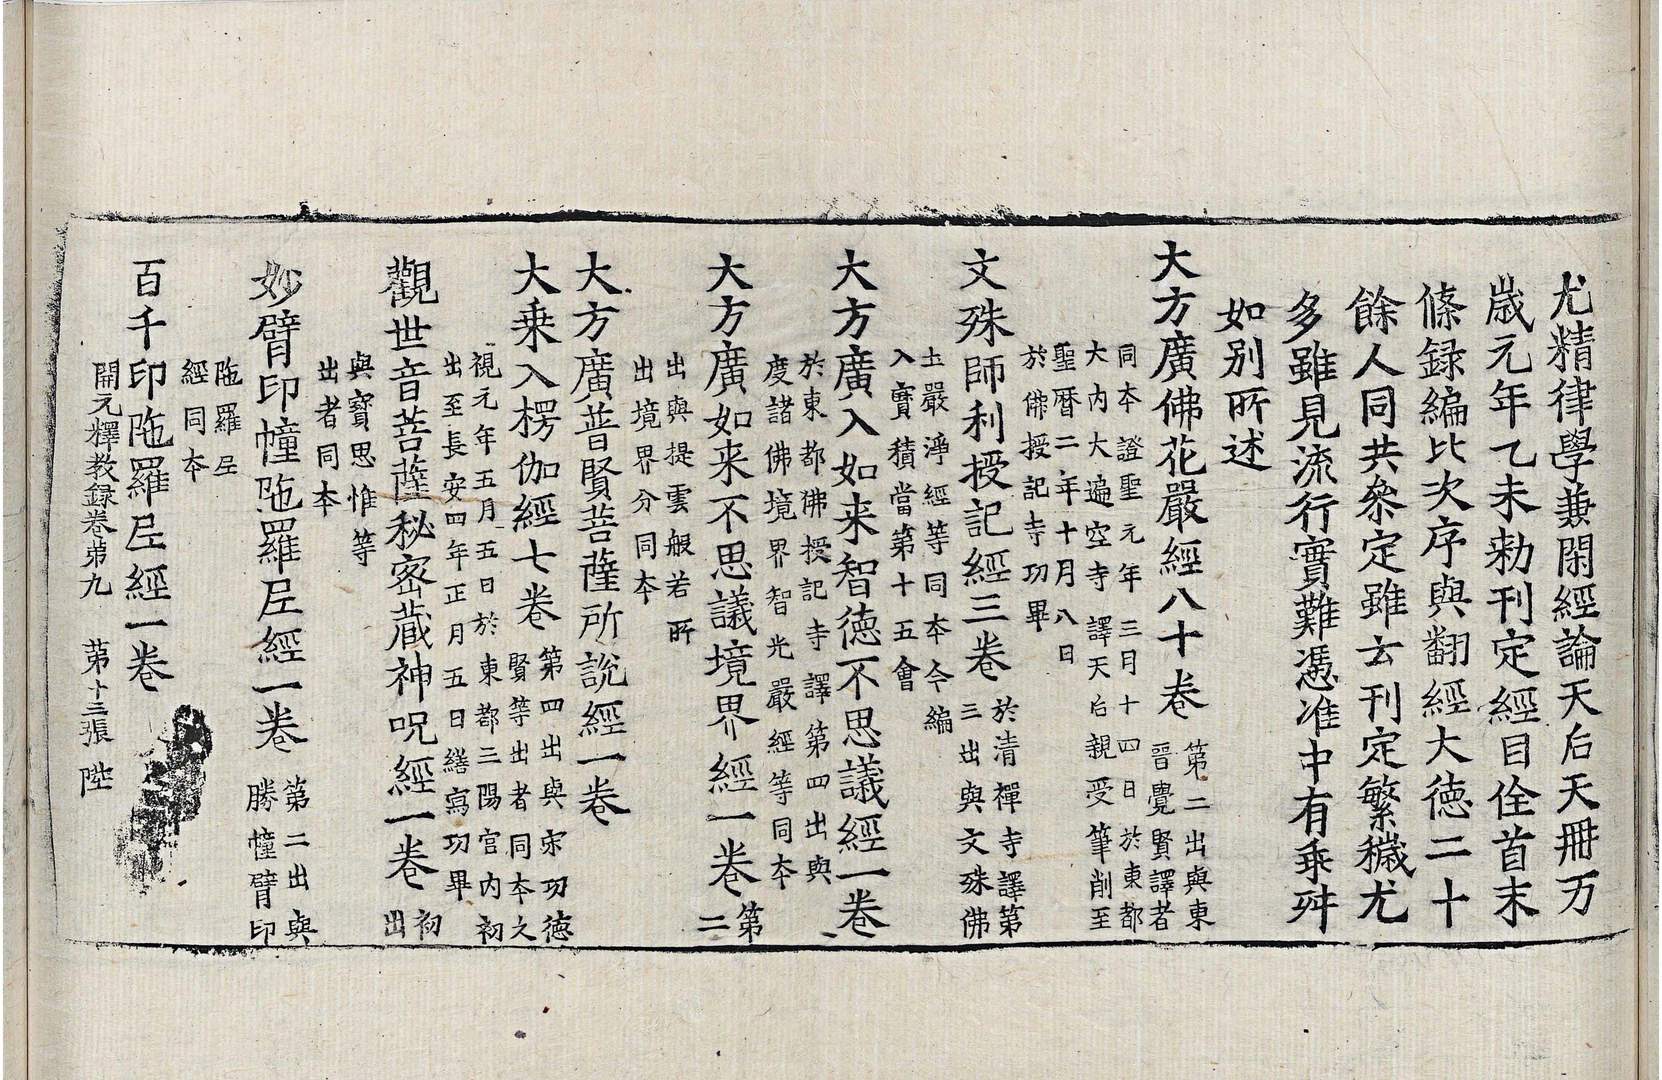 尤精律學兼閑經論天后天冊万
歲元年乙未勑刊定經目佺首末
條録編比次序與翻經大徳二十
餘人同共叅定雖云刊定繁穢尤
多雖見流行實難憑准中有乖舛
如别所述
大方廣佛花嚴經八十卷
第二出與東
晉覺賢譯者
同本證聖元年三月十四日於東都
大内大遍空寺譯天后親受筆削至
聖曆二年十月八日
於佛授記寺功畢
文殊師利授記經三卷
於清禪寺譯第
三出與文殊佛
土嚴淨經等同本今編
入寶積當第十五會
大方廣入如来智徳不思議經一卷
於東都佛授記寺譯第四出與
度諸佛境界智光嚴經等同本
大方廣如来不思議境界經一卷
第
二
出與提雲般若所
出境界分同本
大方廣普賢菩薩所説經一卷
大乗入楞伽經七卷
第四出與宋功徳
賢等出者同本久
視元年五月五日於東都三陽宫内初
出至長安四年正月五日繕寫功畢
觀世音菩薩秘密蔵神呪經一卷
初
出
與寶思惟等
出者同本
妙臂印幢陁羅尼經一卷
第二出與
勝幢臂印
陁羅尼
經同本
百千印陁羅尼經一卷
開元釋教録卷第九 第十三張 陛